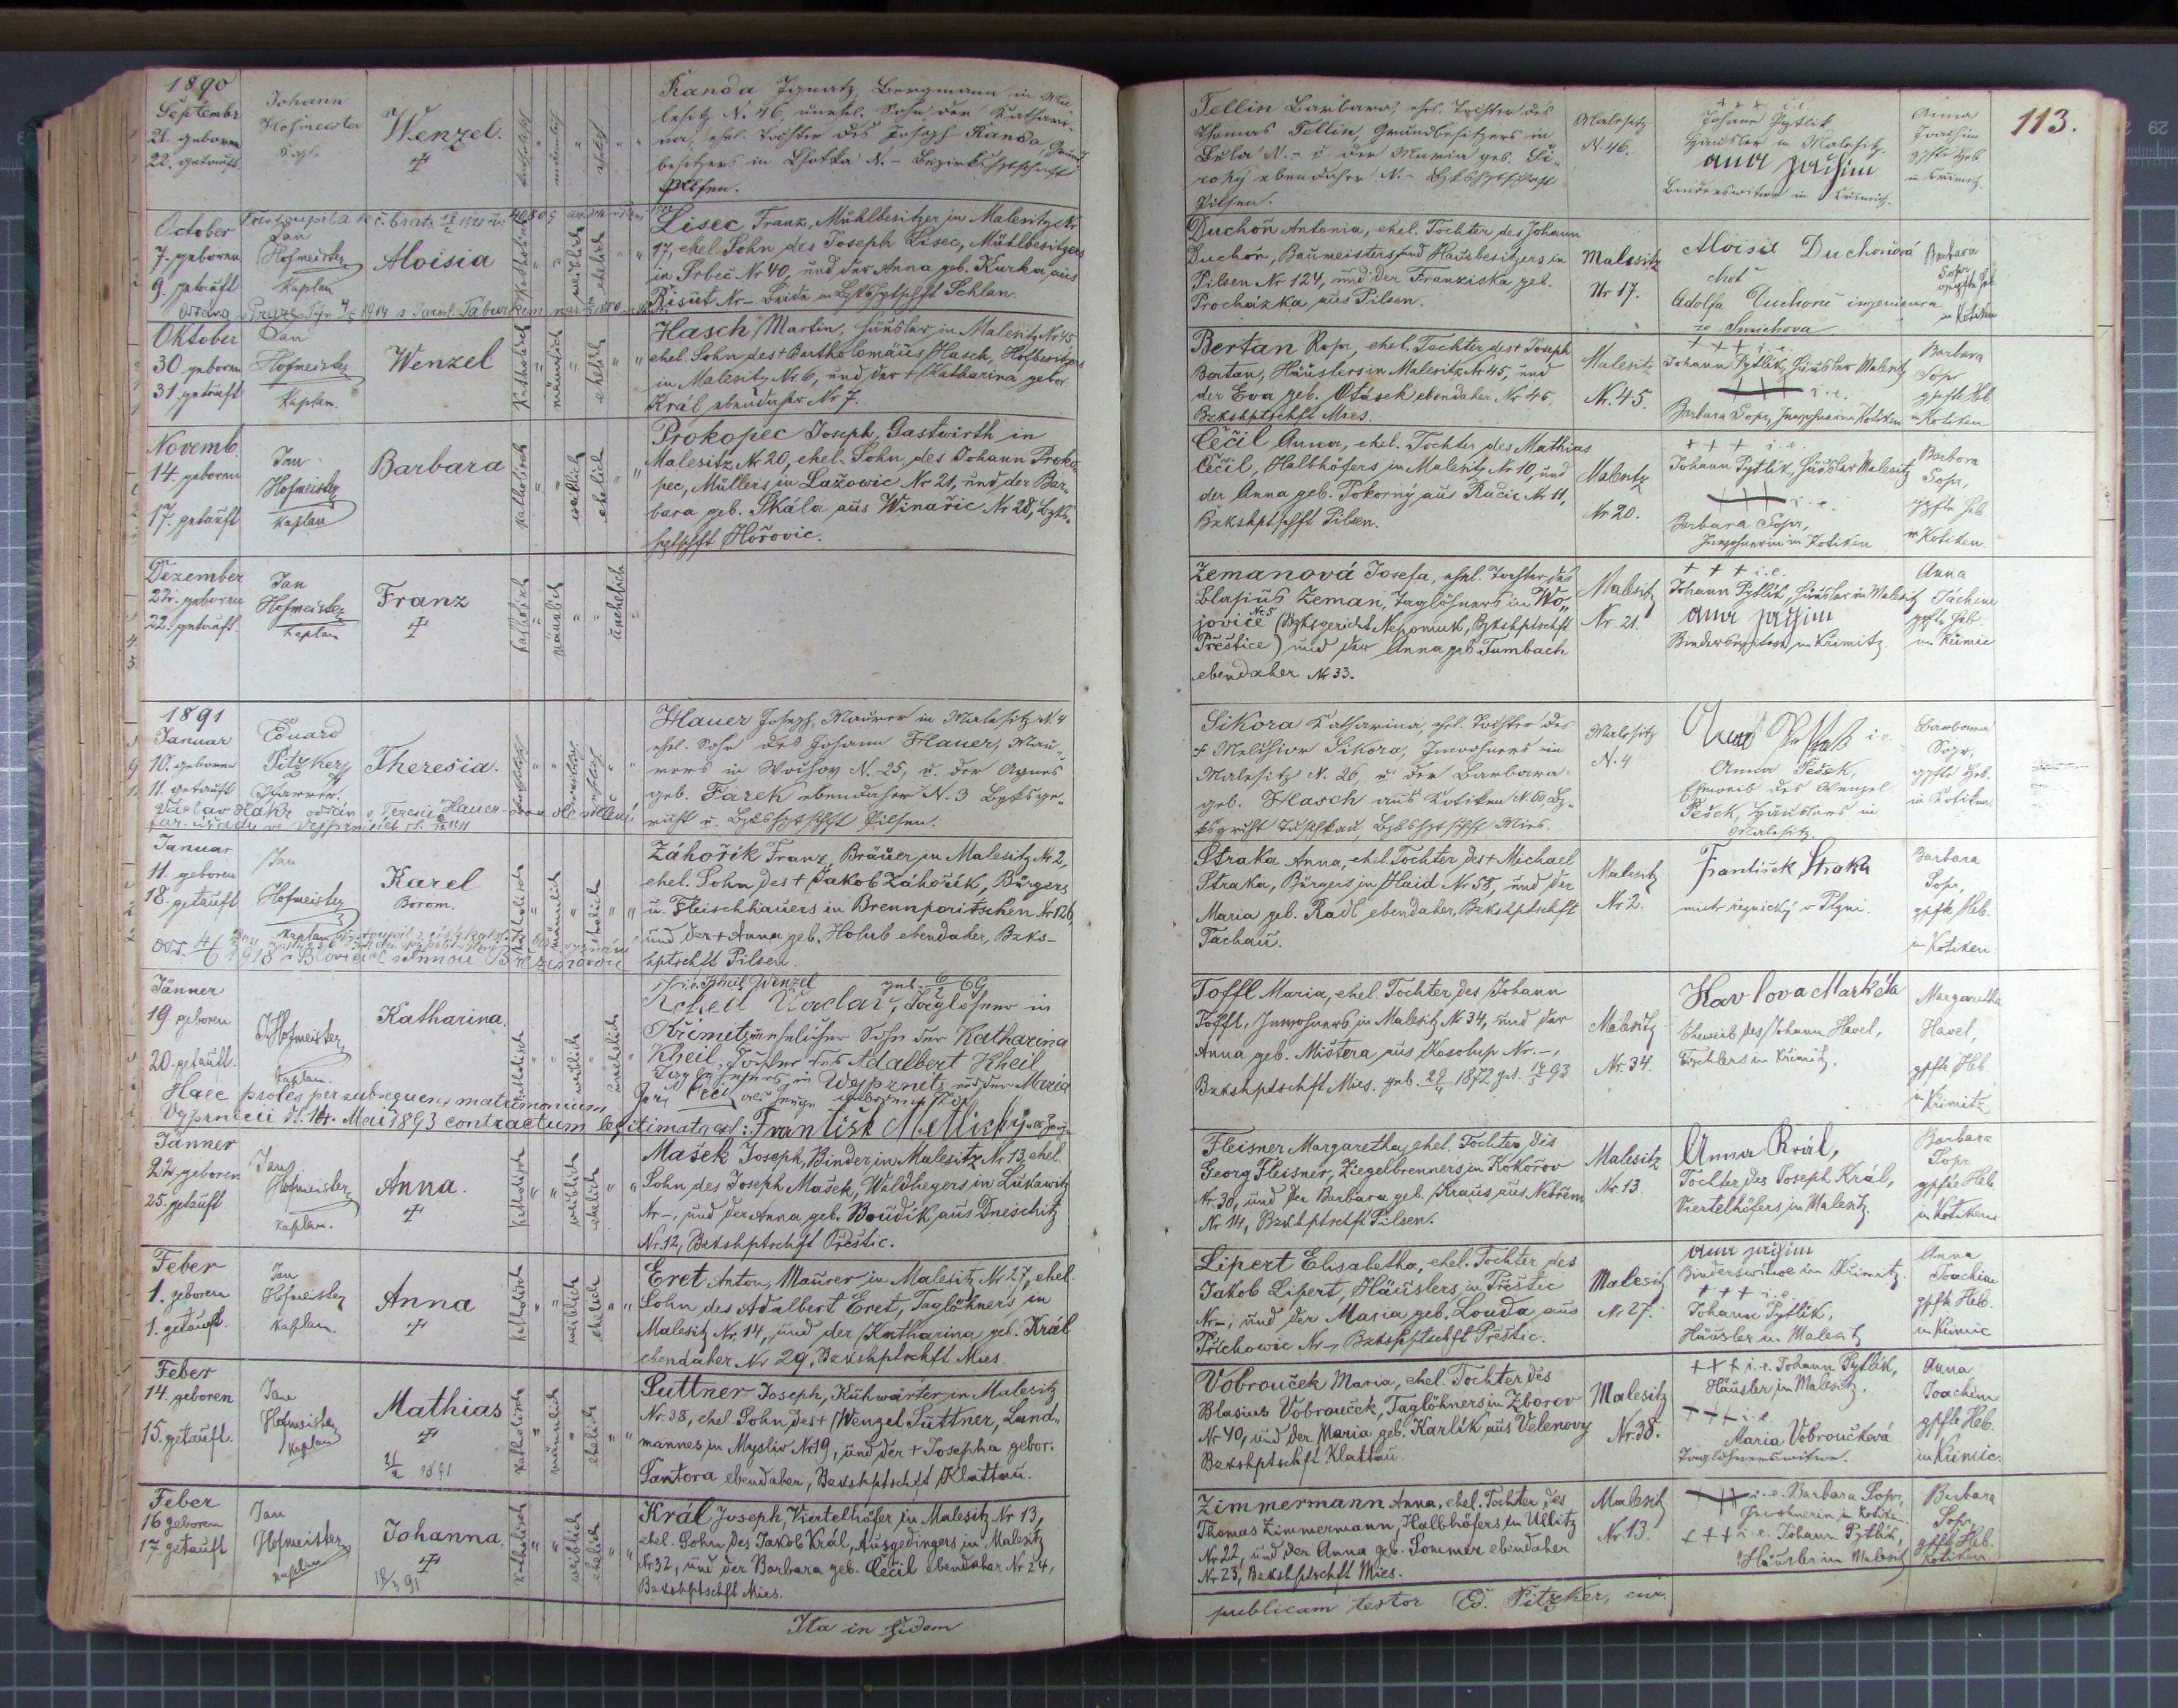 113.
1890
September
21. geboren
22. getauft.
Johann
Hofmeister
Wenzel.
Kanda Ignatz, Bergmann in Ma-
lesitz N. 46, unehel. Sohn der Kathari-
na, ehel. Tochter des Joseph Kanda, Grund
besitzers in Lhotka N. - Bezirkshptschft
Pilsen.
Tellin Barbara, ehel. Tochter des
Thomas Tellin, Grundbesitzers in
Bela N. - u der Maria geb. Ši-
roký ebendaher N. - Bzkshptschft
Pilsen.
Malesitz
N. 46.
+ + + i. e.
Johann Pytlik
Häusler in Malesitz.
Binderswitwe in Křimich.
Anna
Joachim
gpfte Heb.
in Křimitz.
October
7. geboren
9. getauft
Jan
Hofmeister
Kaplan
Aloisia
katholisch
weiblich
ehelich
Lisec Franz, Mühlbesitzer in Malesitz Nr
17, ehel. Sohn des Joseph Lisec, Mühlbesitzers
in Srbeč Nr 40, und der Anna geb. Kurka, aus
Řisut Nr - Beide in Bzkshptschft Schlan.
Duchoň Antonia, ehel. Tochter des Johann
Duchoň, Baumeisters und Hausbesitzers in
Pilsen Nr 124, und der Franziska geb.
Procházka, aus Pilsen.
Malesitz
Nr 17.
Aloisie Duchoňová
choť
Adolfa Duchoně ingenieura
ze Smichova
Barbara
Sopr
gpfte Heb
in Kotiken
Oktober
30 geboren
31. getauft
Jan
Hofmeister
Kaplan.
Wenzel
katholisch
männlich
ehelich
Hasch Martin, Häusler in Malesitz Nr 45
ehel. Sohn des + Bartholomäus Hasch, Hofbesitzers
in Malesitz Nr 6, und der + Katharina gebor.
Král ebendaher Nr 7.
Bertan Rosa, ehel. Tochter des + Joseph
Bertan, Häuslers in Malesitz Nr 45, und
der Eva geb. Otásek ebendaher Nr 45,
Bzkshptschft Mies.
Malesitz
Nr. 45.
+ + + i. e.
Johann Pytlik, Häusler Malesitz
+++ i. e.
Barbara Sopr, Inwohnerin Kotiken
Barbara
Sopr
gpfte Heb
in Kotiken
Novemb.
14. geboren
17. getauft
Jan
Hofmeister
Kaplan
Barbara
katholisch
weiblich
ehelich
Prokopec Joseph, Gastwirth in
Malesitz Nr 20, ehel. Sohn des Johann Proko-
pec, Müllers in Lažowic Nr 21, und der Bar-
bara geb. Skála aus Winařic Nr 28, Bzks-
hptschft Hořovic.
Čečil Anna, ehel. Tochter des Mathias
Čečil, Halbhöfers in Malesitz Nr 10, und
der Anna geb. Pokorný aus Račic Nr 11,
Bzkshptschft Pilsen.
Malesitz
Nr 20.
+ + + i. e.
Johann Pytlik, Häusler Malesitz
+++ i. e.
Barbara Sopr,
Inwohnerin in Kotiken
Barbora
Sopr,
gpfte Heb
in Kotiken.
Dezember
22. getauft.
Jan
Hofmeister
Kaplan
Franz
katholisch
männlich
unehelich
Zemanová Josefa, ehel. Tochter des
Blasius Zeman, Taglöhners in Wo-
jovice Nr 5 (Bzksgericht Nepomuk, Bzkshptschft
Přeštice) und der Anna geb Tumbach
ebendaher Nr 33.
Malesitz
Nr. 21.
+ + + i. e.
Johann Pytlik, Häusler in Malesitz
Binderswitwe in Křimitz.
Anna
Jachim
gpfte Heb.
in Křimic
1891
Januar
10. geboren
11. getauft
Eduard
Pitzker
Pfarrer.
Theresia.
Hauer Joseph, Maurer in Malesitz N 4
ehel. Sohn des Johann Hauer, Mau-
rers in Wochov N. 25, u. der Agnes
geb. Farek ebendaher N. 3 Bzksge-
richt u. Bzkshptschft Pilsen.
Sikora Katharina, ehel. Tochter des
+ Melchior Sikora, Inwohners in
Malesitz N. 26, u der Barbara
geb. Hasch aus Kotiken N. 60 Bz-
ksgricht Tuschkau, Bzkshptschft Mies.
Malesitz
N. 4
i. e.
Anna Pešek,
Eheweib des Wenzel
Pešek, Häuslers in
Malesitz.
Barbara
Sopr,
gpfte Heb.
in Kotiken
Januar
11. geboren
18. getauft
Jan
Hofmeister
Kaplan
Karel
Borom.
katholisch
männlich
ehelich
Záhořík Franz, Bräuer in Malesitz Nr 2,
ehel. Sohn des + Jakob Záhořík, Bürgers
u. Fleischhauers in Brennporitschen Nr 126,
und der + Anna geb. Holub ebendaher, Bzks-
hptschft Pilsen.
Straka Anna, ehel. Tochter des + Michael
Straka, Bürgers in Haid Nr 58, und der
Maria geb. Radl ebendaher, Bzkshptschft
Tachau.
Malesitz
Nr 2.
František Straka
mistr řeznický v Plzni.
Barbara
Sopr,
gpfte Heb.
in Kotiken
Jänner
19 geboren
20. getauft.
Hofmeister
Kaplan.
Katharina.
katholisch
weiblich
unehelich
Kheil Wenzel
Kcheil Vaclav, Taglöhner in
Křimetz unehelicher Sohn der Katharina
Kheil, Tochter des Adalbert Kheil
Taglöhners in Wejprnitz und der Maria
Haec proles per subsequens matrimonium
Vyprnicii dt. 14. Mai 1893 contractum legitimata est: František
Toffl Maria, ehel. Tochter des Johann
Toffl, Inwohners in Malesitz Nr 34, und der
Anna geb. Mištera aus Kosolup Nr. -,
Bzkshptschft Mies. geb. 29/4 1872 get. 14/5 93
Malesitz
Nr. 34.
Havlova Markéta
Eheweib des Johann Havel,
Tischlers in Křimitz.
Margaretha
Havel,
gpfte Heb.
in Křimitz
Jänner
22 geboren
25. getauft
Jan
Hofmeister
Kaplan.
Anna.
katholisch
weiblich
ehelich
Mašek Joseph, Binder in Malesitz Nr 13, ehel.
Sohn des Joseph Mašek, Waldhegers in Lukawitz
Nr -, und der Anna geb. Boudík aus Dneschitz
Nr. 12, Bzkshptschft Přeštic.
Fleisner Margaretha, ehel. Tochter des
Georg Fleisner, Ziegelbrenners in Kokořov
Nr. 30, und der Barbara geb. Kraus aus Nebřem
Nr 14, Bzkshptschft Pilsen.
Malesitz
Nr. 13
Anna Král,
Tochter des Joseph Král,
Viertelhöfers in Malesitz.
Barbara
Sopr
gpfte Heb.
in Kotiken
Feber
1. geboren
1. getauft.
Jan
Hofmeister
Kaplan.
Anna
katholisch
weiblich
ehelich
Eret Anton, Maurer in Malesitz Nr 27, ehel.
Sohn des Adalbert Eret, Taglöhners in
Malesitz Nr. 14, und der Katharina geb. Král
ebendaher Nr 29, Bzkshptschft Mies.
Lipert Elisabetha, ehel. Tochter des
Jakob Lipert, Häuslers in Přeštic
Nr -, und der Maria geb. Louda aus
Přichowic Nr -, Bzkshptschft Přeštic.
Malesitz
Nr 27.
Binderswitwe in Křimitz.
+ + + i. e.
Johann Pytlik,
Häusler in Malesitz
Anna
Joachim
gpfte Heb.
in Křimic
Feber
14. geboren
15. getauft.
Jan
Hofmeister
Kaplan
Mathias
21/2 1891
katholisch
männlich
ehelich
Suttner Joseph, Kuhwärter in Malesitz
Nr. 38, ehel. Sohn des + Wenzel Suttner, Land-
mannes in Myslív Nr 19, und der + Josepha gebor.
Santora ebendaher, Bzkshptschft Klattau.
Vobrouček Maria, ehel. Tochter des
Blasius Vobrouček, Taglöhners in Zborov
Nr 40, und der Maria geb. Karlík aus Velenovy
Bzkshptschft Klattau.
Malesitz
Nr. 38.
+ + + i. e. Johann Pytlik,
Häusler in Malesitz.
+++ i. e.
Maria Vobroučková
Taglöhnerswitwe.
Anna
Joachim
gpfte Heb.
in Křimic.
Feber
16 geboren
17. getauft
Jan
Hofmeister
Kaplan
Johanna.
18/3 91
katholisch
weiblich
ehelich
Král Joseph, Viertelhöfer in Malesitz Nr 13,
ehel. Sohn des Jakob Král, Ausgedingers in Malesitz
Nr 32, und der Barbara geb. Čečil ebendaher Nr 24,
Bzkshptschft Mies.
Zimmermann Anna, ehel. Tochter des
Thomas Zimmermann, Halbhöfers in Ullitz
Nr 22, und der Anna geb. Sommer ebendaher
Nr 23, Bzkshptschft Mies.
Malesitz
Nr. 13.
+++ i. e. Barbara Sopr,
Inwohnerin in Kotiken.
+ + + i. e. Johann Pytlik,
Häusler in Malesitz
Barbara
Sopr,
gpfte Heb.
Kotiken
Ita in fidem
publicam testor Ed. Pitzker, cur.